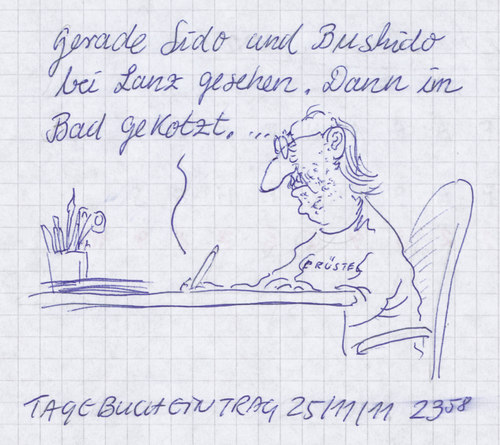 Gerade Sido und Bushido
bei Lanz gesehen. Dann im
Bad geKotzt. ...
TAGEBUCHEINTRAG 25/11/11 23⁵⁸